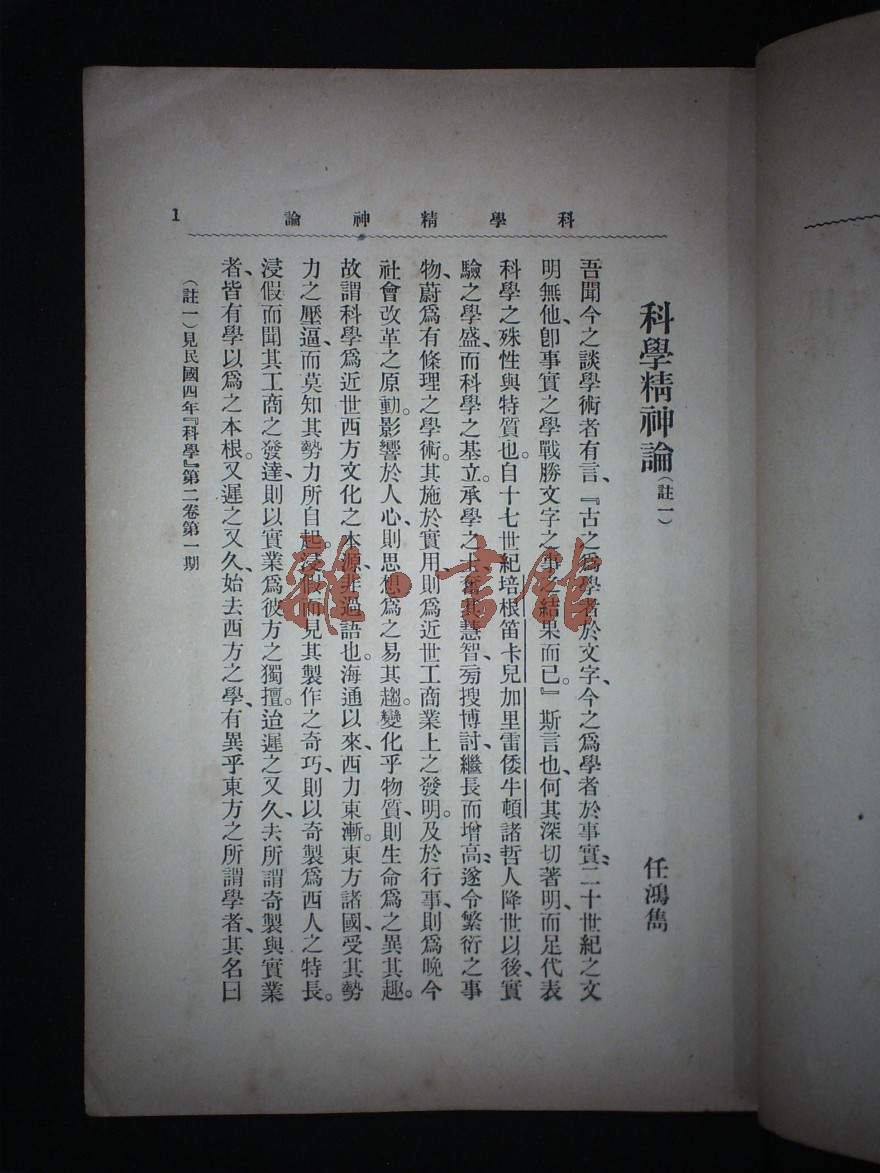 科學精神論
1
科學精神論(註一)
任鴻雋
吾聞今之談學術者有言、『古之爲學者於文字、今之爲學者於事實、二十世紀之文
明無他、卽事實之學戰勝文字之學之結果而已。』斯言也、何其深切著明、而足代表
科學之殊性與特質也。自十七世紀培根笛卡兒加里雷倭牛頓諸哲人降世以後、實
驗之學盛、而科學之基立。承學之士、奮其慧智、旁搜博討、繼長而增高、遂令繁衍之事
物、蔚爲有條理之學術。其施於實用、則爲近世工商業上之發明。及於行事、則爲晚今
社會改革之原動。影響於人心、則思想爲之易其趨。變化乎物質、則生命爲之異其趣。
故謂科學爲近世西方文化之本源、非過語也。海通以來、西力東漸。東方諸國、受其勢
力之壓逼、而莫知其勢力所自起。浸假而見其製作之奇巧、則以奇製爲西人之特長。
浸假而聞其工商之發達、則以實業爲彼方之獨擅。迨遲之又久、夫所謂奇製與實業
者、皆有學以爲之本根。又遲之又久、始去西方之學、有異乎東方之所謂學者、其名曰
(註一)見民國四年『科學』第二卷第一期
雜·書館